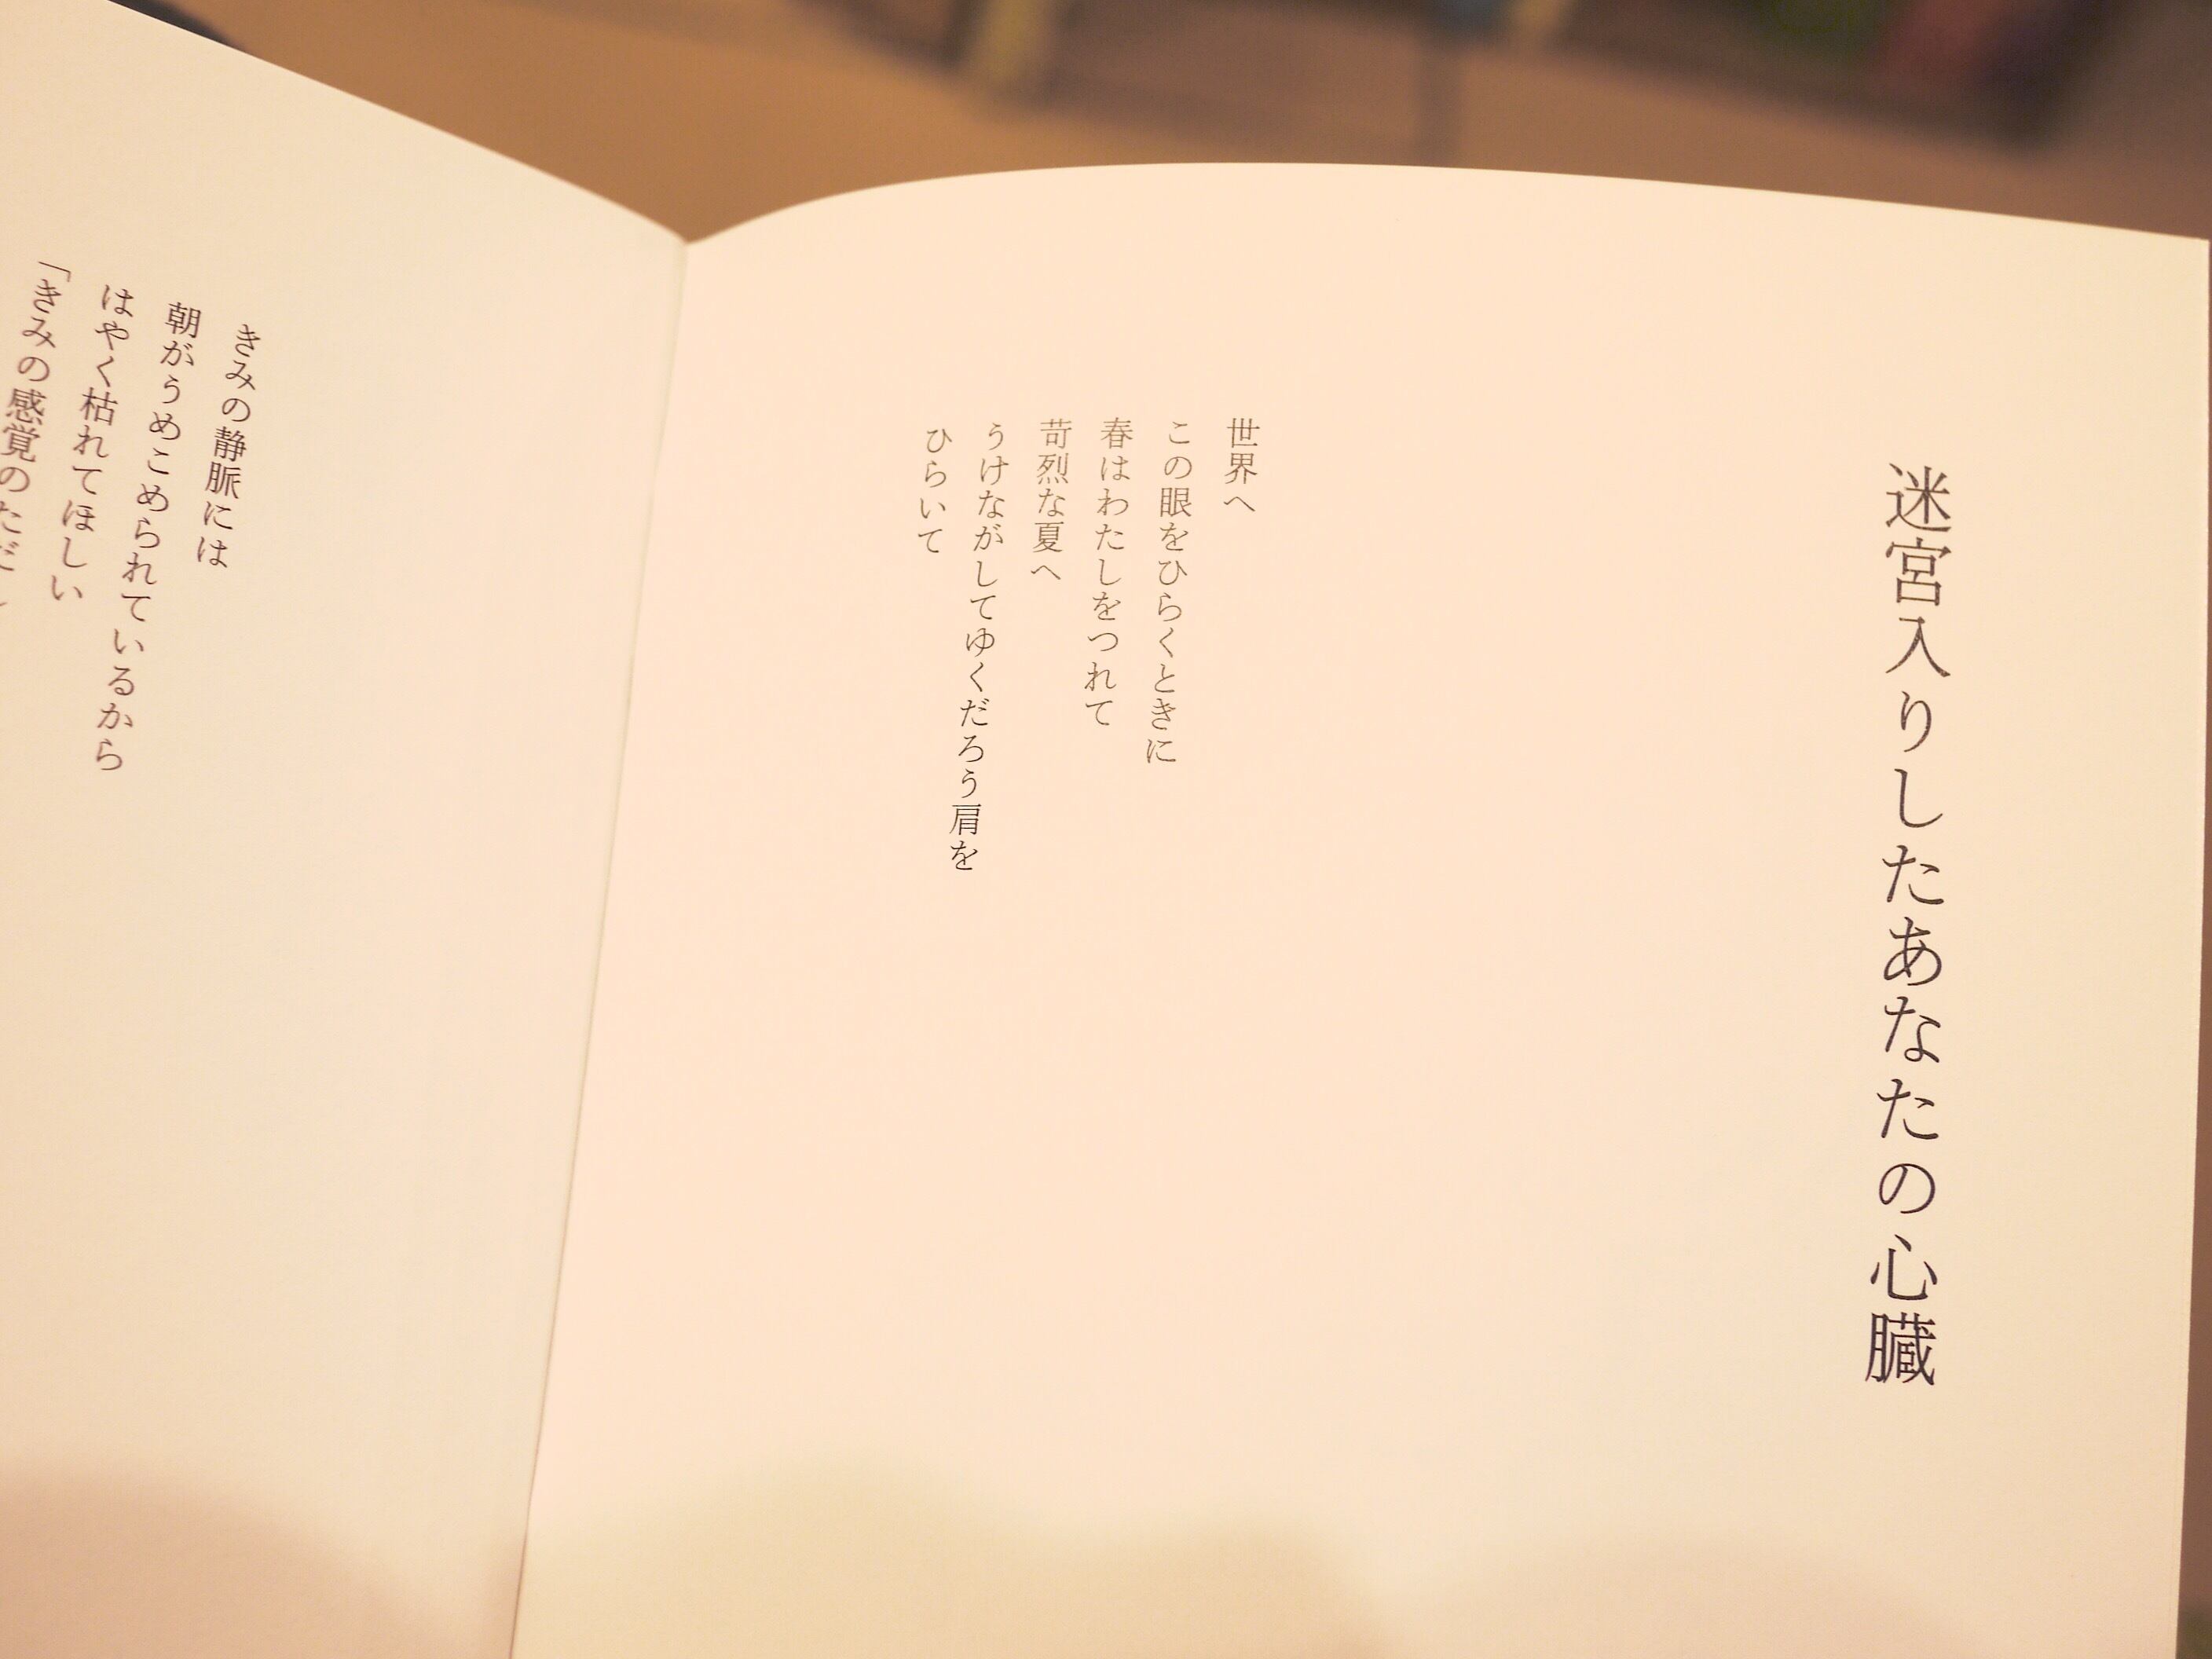 迷宮入りしたあなたの心臓
世界へ
この眼をひらくときに
春はわたしをつれて
苛烈な夏へ
うけながしてゆくだろう肩を
ひらいて
きみの静脈には
朝がうめこめられているから
はやく枯れてほしい
「きみの感覚のただし